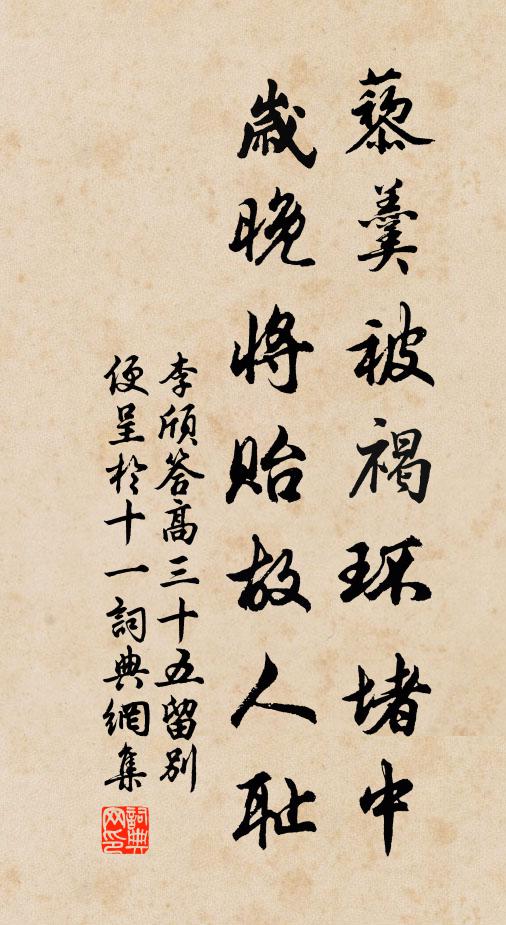 藜羹被褐环堵中
歳晚将貽故人耻
李颀答高三十五留别
便呈於十一詞典網集
詞典
网印